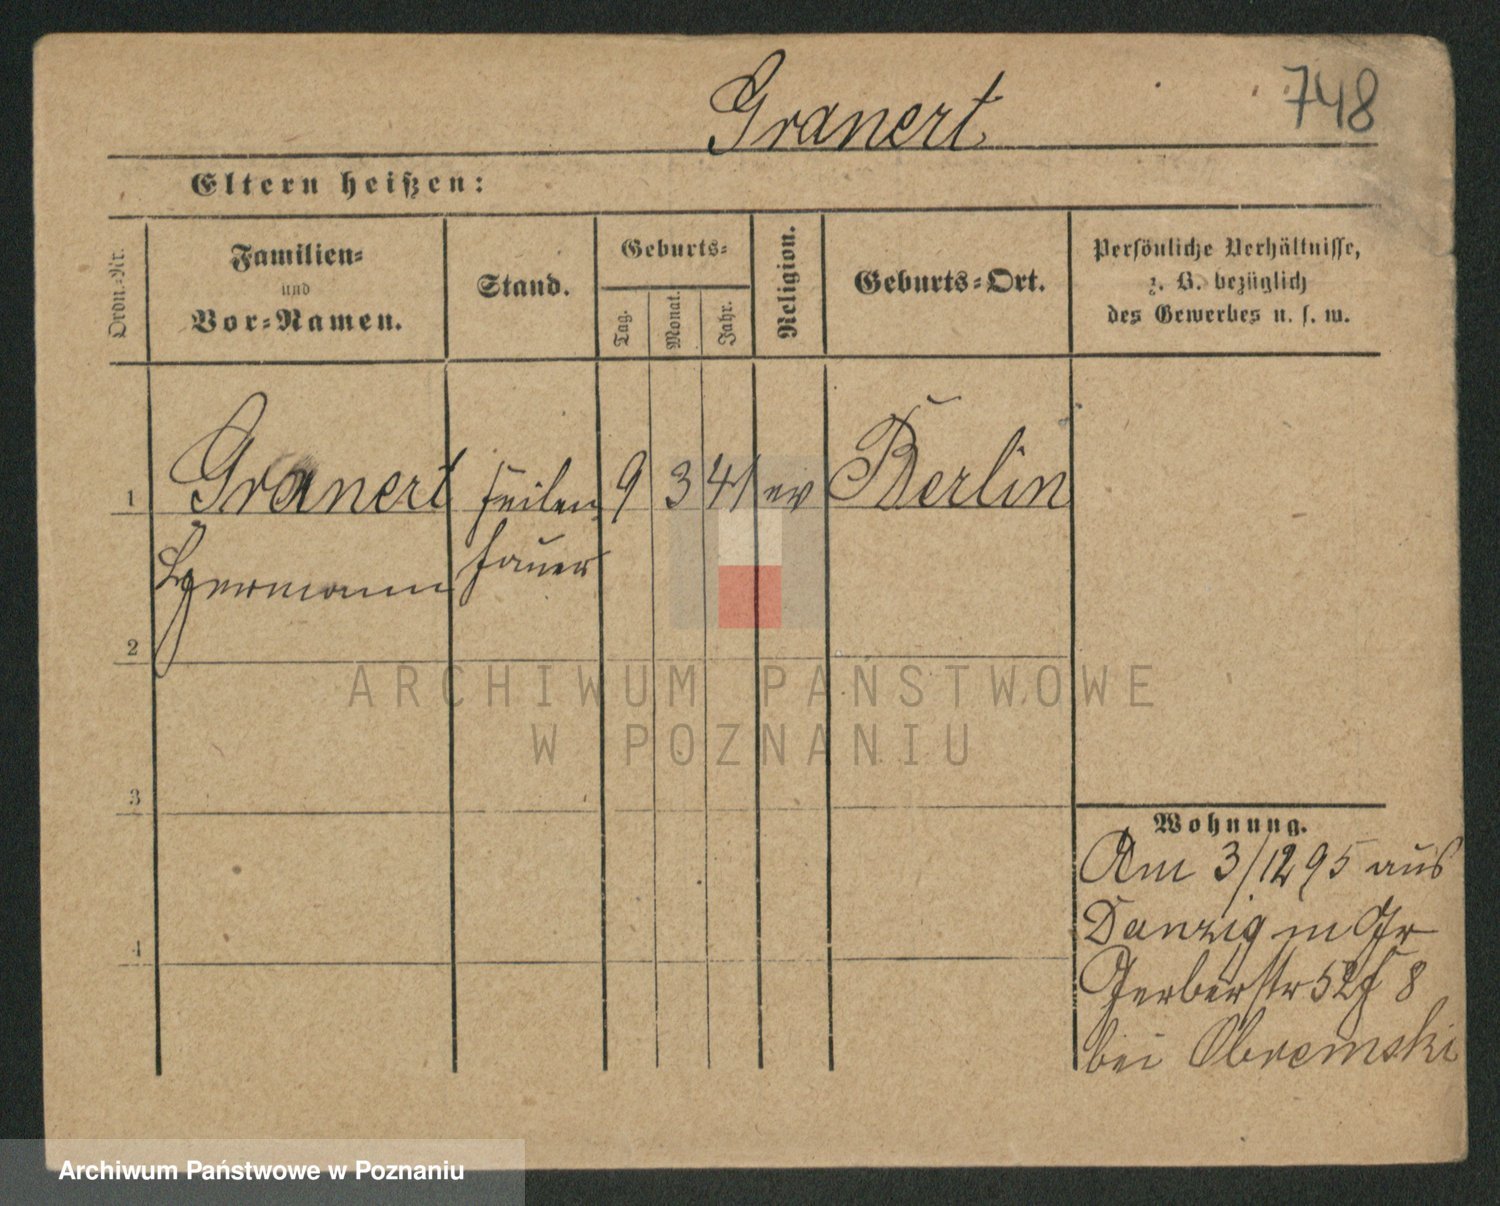 Granert
748
Eltern heißen:
Ordn.-Nr.
Familien-
und
Vor-Namen.
Stand.
Geburts-
Tag.
Monat.
Jahr.
Religion.
Geburts-Ort.
Persönliche Verhältnisse,
z. B. bezüglich
des Gewerbes u. s. w.
1 Granert Feilen 9 3 41 ev Berlin
Hermann hauer
2
ARCHIWUM PAŃSTWOWE
W POZNANIU
3
Wohnung.
Am 3/12 95 aus
Danzig in Gr
4
Gerberstr 52 8
bei Obremski
Archiwum Państwowe w Poznaniu